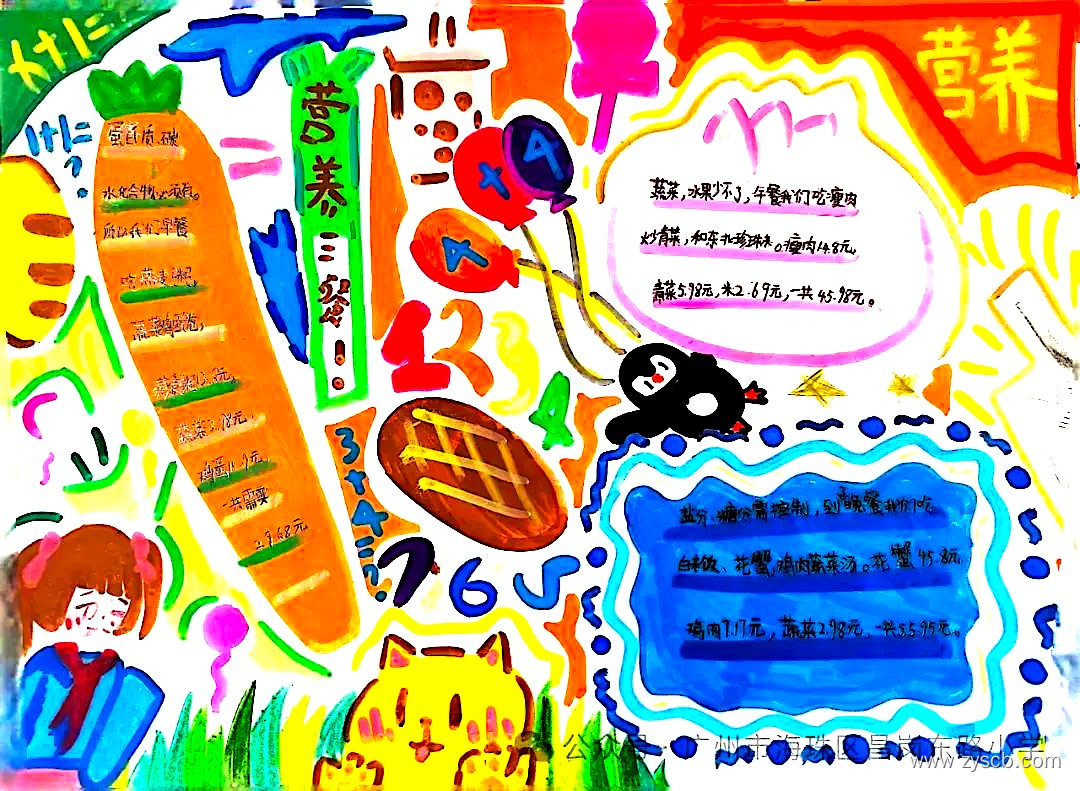 营养三餐!
营养
蛋白质、碳
水化合物必须有。
所以我们早餐
吃燕麦粥
蔬菜3.98元
鸡蛋11.9元
一共需要
蔬菜,水果少不了,午餐我们吃瘦肉
炒青菜,和东北珍珠米。瘦肉14.8元
青菜5.98元,米2.69元,一共45.98元。
盐分、糖分需控制,到晚餐我们吃
白米饭、花蟹,鸡肉蔬菜汤。花蟹45.8元
鸡肉7.17元,蔬菜2.98元,一共55.95元。
1 2 3
4
5
6
7
3+4=?
+
4
4
公众号·广州市海珠区昌岗东路小学
www.zyscb.com